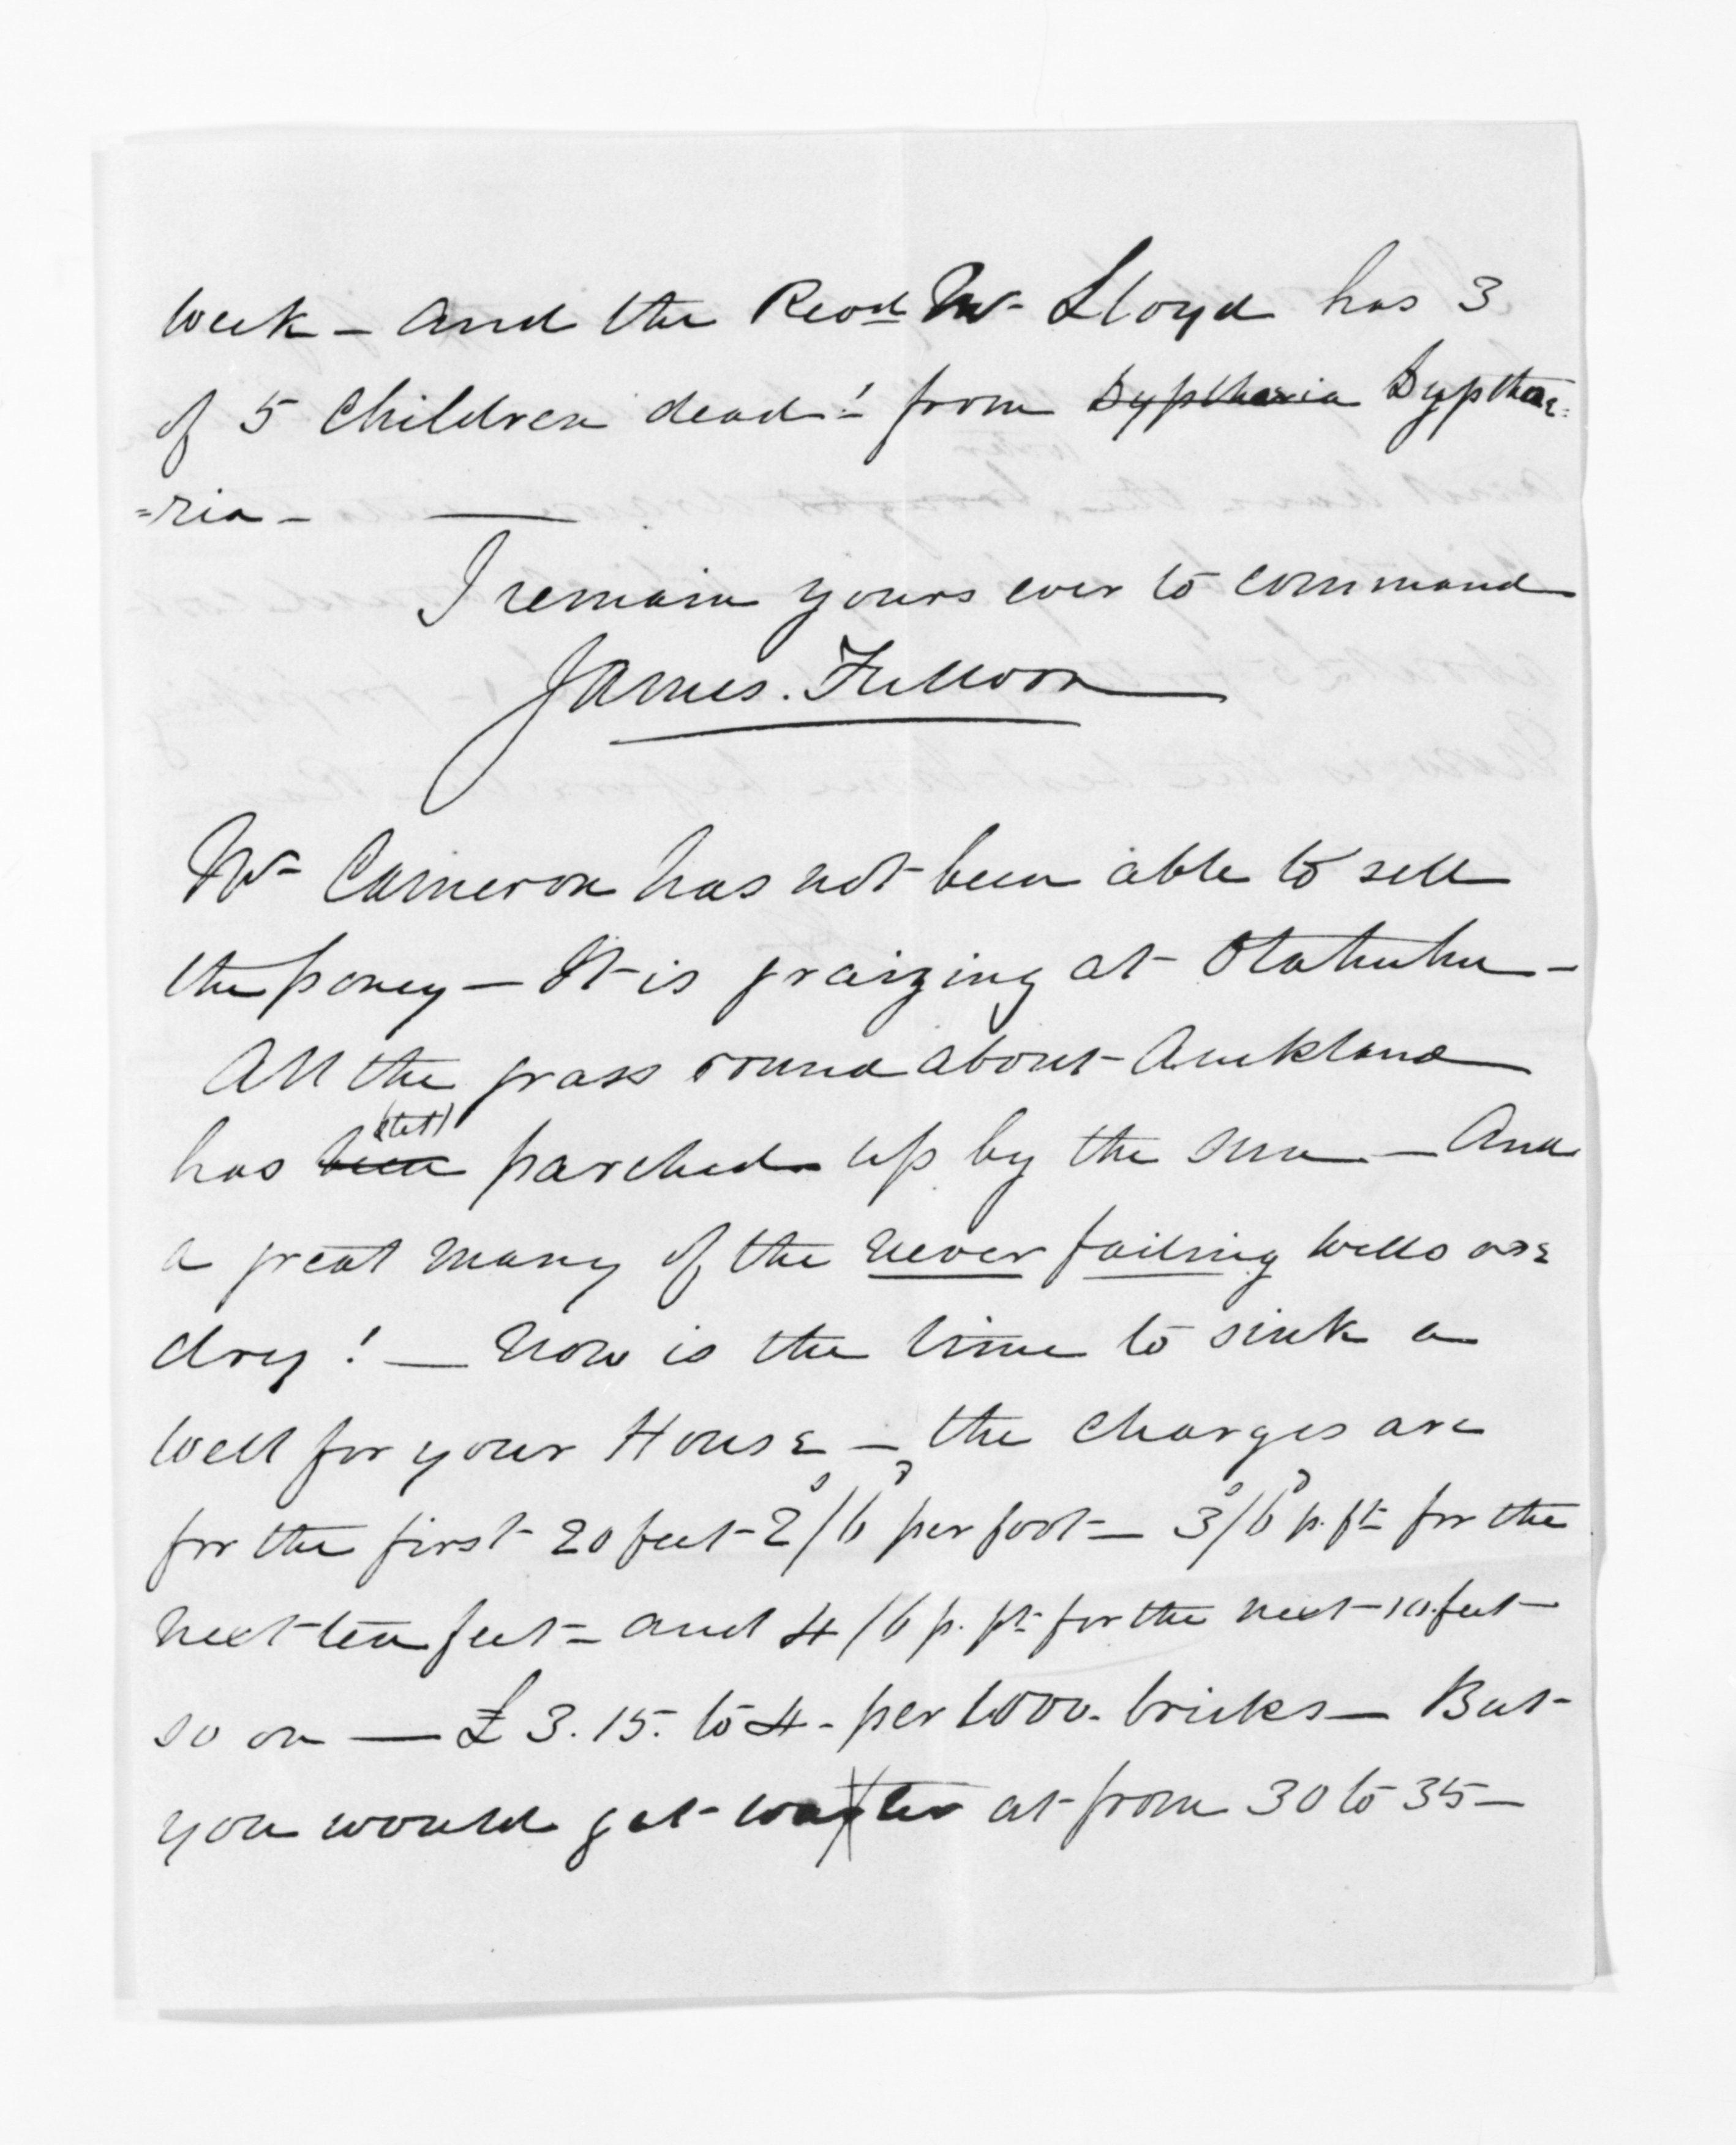 week - and the Revd Mr Lloyd has 3
of 5 children dead! from Dyptheria Dypthe=
=ria -
I remain yours ever to command
James. Fulloon
Mr Cameron has not been able to sell
the poney - It is graizing at Otahuhu -
All the grass round about Auckland
has been (stet) parched up by the sun - And
a great many of the never failing wells are
dry! - Now is the time to sink a
well for your House - the charges are
for the first 20 feet 2s/6d per foot - 3s/6d p. ft for the
next ten feet - and 4/6 p. ft for the next 10 feet
so on - £3.15. to 4. per 1000. bricks - But
you would get water at from 30 to 35 -